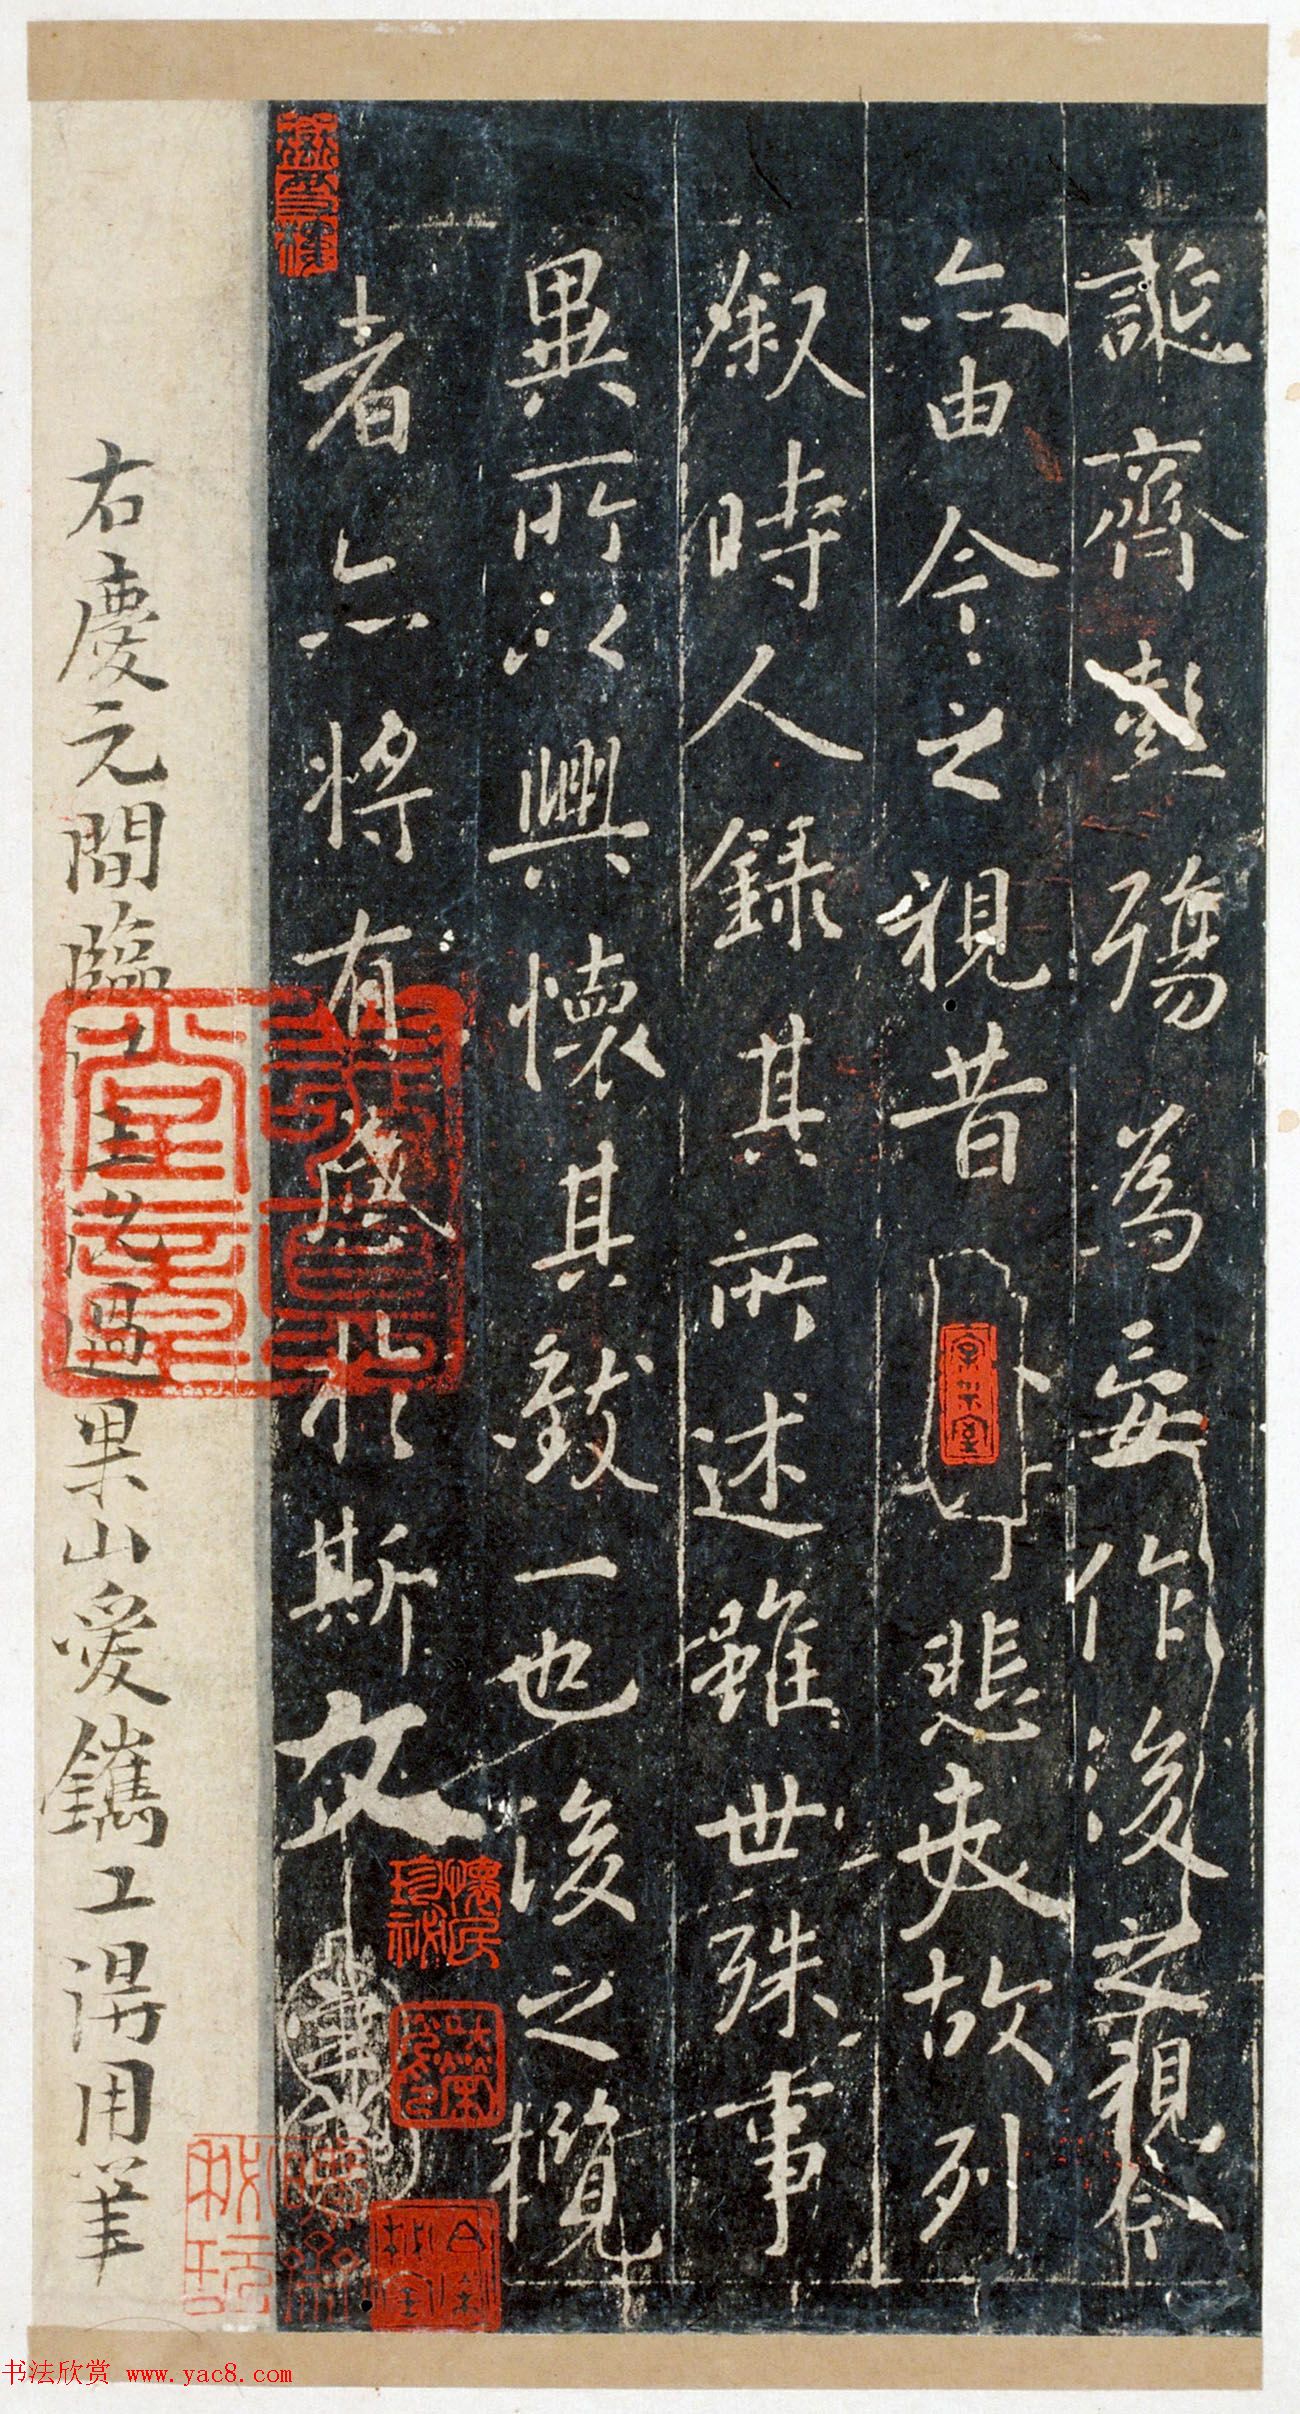 誕齊彭殤為妄作後之視今
亦由今之視昔悲夫故列
叙時人錄其所述雖世殊事
異所以興懷其致一也後之攬
者亦將有感於斯文
右慶元間臨江過果山爰鐫工湯用筆
书法欣赏 www.yac8.com